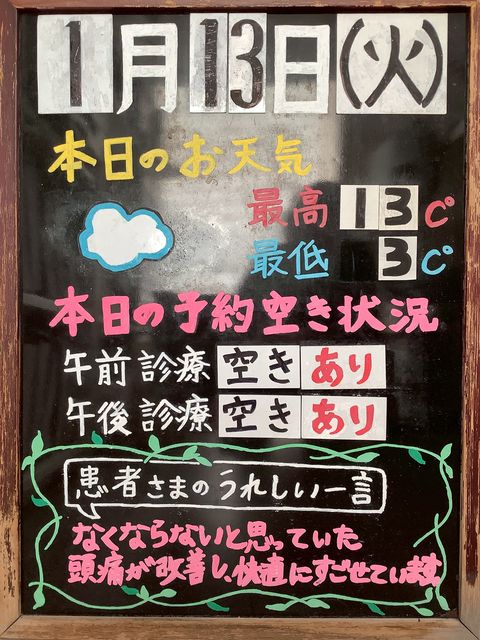 1月13日(火)
本日のお天気
最高 13 C°
最低 3 C°
本日の予約空き状況
午前診療 空き あり
午後診療 空き あり
患者さまのうれしい一言
なくならないと思っていた
頭痛が改善し、快適にすごせています